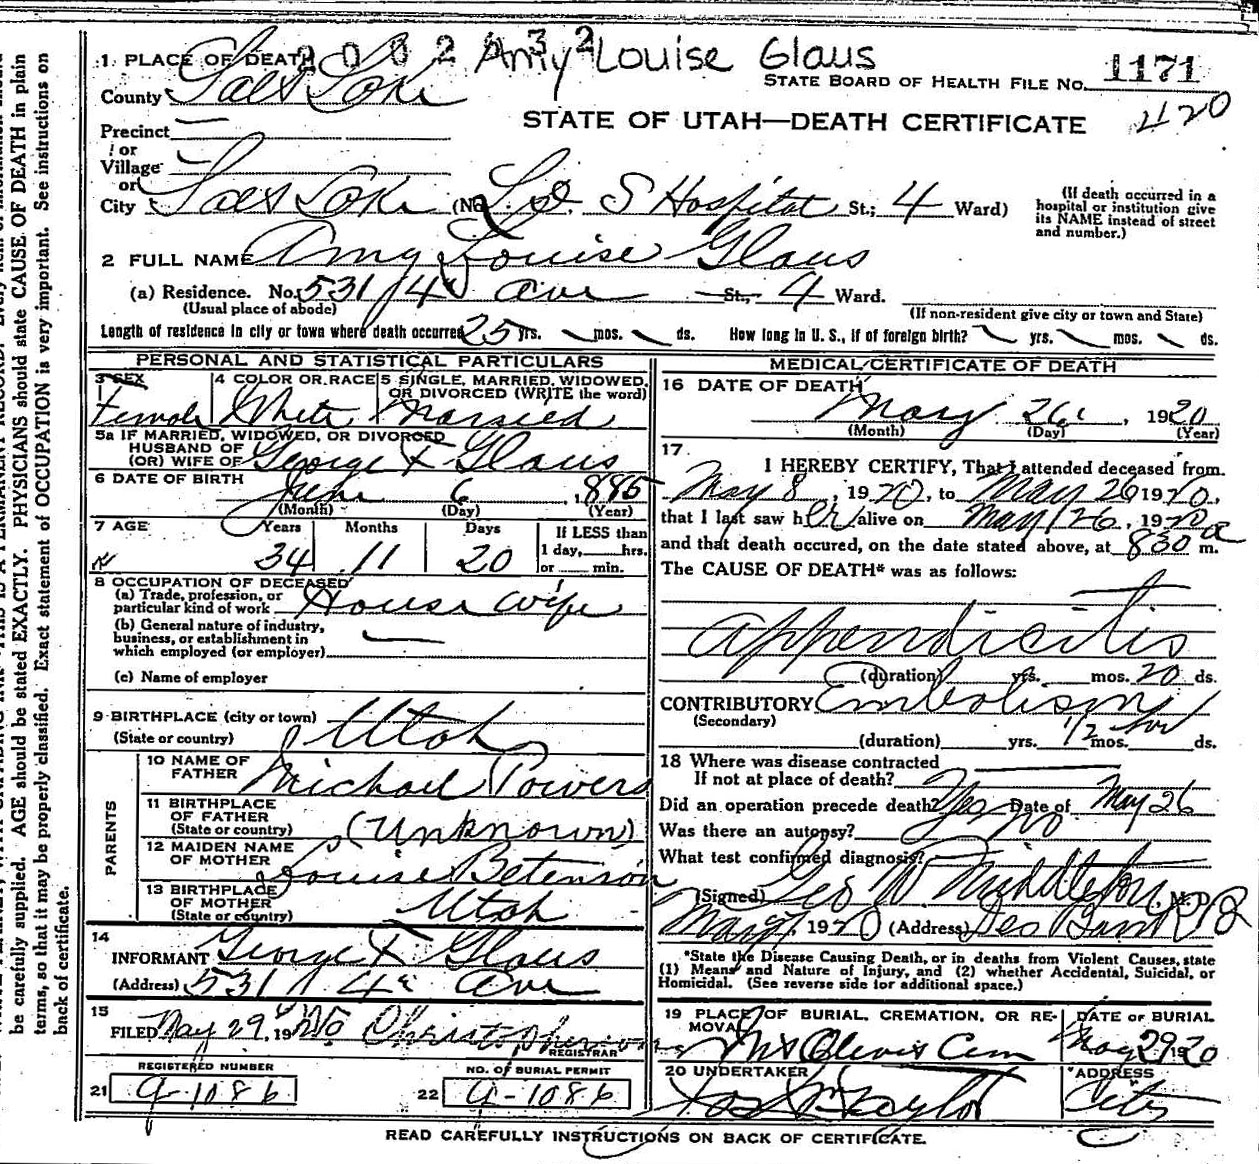 be carefully supplied. AGE should be stated EXACTLY. PHYSICIANS should state CAUSE OF DEATH in plain
terms, so that it may be properly classified. Exact statement of OCCUPATION is very important. See instructions on
back of certificate.
2 0 0 2 3 2 Amy Louise Glaus
1 PLACE OF DEATH
STATE BOARD OF HEALTH FILE NO. 1171
County Salt Lake
420
STATE OF UTAH—DEATH CERTIFICATE
Precinct
or
Village
or
City Salt Lake (No. L. D. S Hospital St.; 4 Ward)
(If death occurred in a hospital or institution give its NAME instead of street and number.)
2 FULL NAME Amy Louise Glaus
(a) Residence. No. 531 4th Ave St., 4 Ward.
(Usual place of abode) (If non-resident give city or town and State)
Length of residence in city or town where death occurred 25 yrs. mos. ds. How long in U. S., if of foreign birth? yrs. mos. ds.
PERSONAL AND STATISTICAL PARTICULARS
3 SEX 4 COLOR OR RACE 5 SINGLE, MARRIED, WIDOWED, OR DIVORCED (WRITE the word)
Female White Married
5a IF MARRIED, WIDOWED, OR DIVORCED
HUSBAND OF
(OR) WIFE OF George F Glaus
6 DATE OF BIRTH June 6, 1885
(Month) (Day) (Year)
7 AGE Years Months Days If LESS than
34 11 20 1 day, hrs.
or min.
8 OCCUPATION OF DECEASED
(a) Trade, profession, or
particular kind of work House wife
(b) General nature of industry,
business, or establishment in
which employed (or employer)
(c) Name of employer
9 BIRTHPLACE (city or town)
(State or country) Utah
PARENTS
10 NAME OF
FATHER Michael Powers
11 BIRTHPLACE
OF FATHER
(State or country) (Unknown)
12 MAIDEN NAME
OF MOTHER Louise Betenson
13 BIRTHPLACE
OF MOTHER
(State or country) Utah
14
INFORMANT George F Glaus
(Address) 531 4th Ave
15
FILED May 29, 19 Christopherson
REGISTRAR
REGISTERED NUMBER NO. OF BURIAL PERMIT
21 a-1086 22 a-1086
MEDICAL CERTIFICATE OF DEATH
16 DATE OF DEATH
May 26, 1920
(Month) (Day) (Year)
17.
I HEREBY CERTIFY, That I attended deceased from.
May 8, 1920, to May 26 1920,
that I last saw her alive on May 26, 1920
and that death occured, on the date stated above, at 830 a m.
The CAUSE OF DEATH* was as follows:
Appendicitis
(duration) yrs. mos. 20 ds.
CONTRIBUTORY Embolism
(Secondary)
(duration) yrs. 1/2 mos. ds.
18 Where was disease contracted
If not at place of death?
Did an operation precede death? Yes Date of May 26
Was there an autopsy? no
What test confirmed diagnosis?
(Signed) Geo W Middleton, M. D.
May 1920 (Address)
*State the Disease Causing Death, or in deaths from Violent Causes, state
(1) Means and Nature of Injury, and (2) whether Accidental, Suicidal, or
Homicidal. (See reverse side for additional space.)
19 PLACE OF BURIAL, CREMATION, OR RE-
MOVAL Mt Olivis Cem
DATE OF BURIAL
May 29 1920
20 UNDERTAKER
Jos Wm Taylor
ADDRESS
City
READ CAREFULLY INSTRUCTIONS ON BACK OF CERTIFICATE.